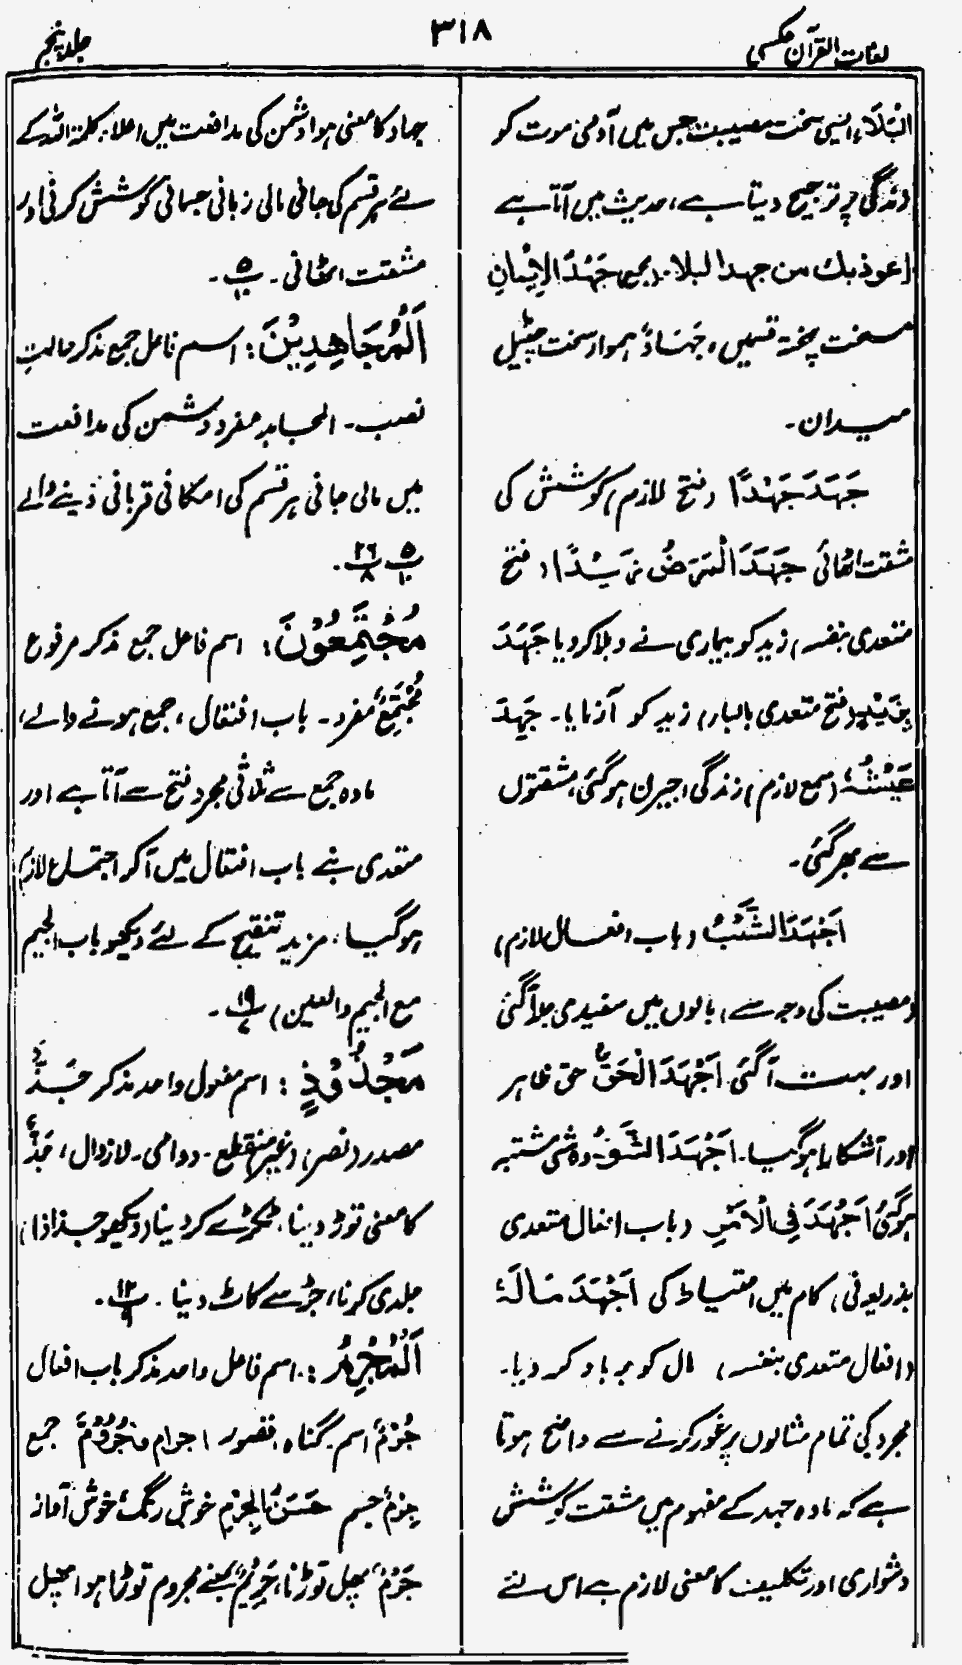 لغات القرآن عکسی
۳۱۸
جلد پنجم
البَلَاء ایسی سخت مصیبت جس میں آدمی موت کو
زندگی پر ترجیح دیتا ہے، حدیث میں آتا ہے
اعوذ بک من جہد البلاء (بجمع) جَہْدُ الایمانِ
سخت پختہ قسمیں، جَہَادٌ ہموار سخت چٹیل
میدان۔
جَہَدَ جَہْدًا (فتح لازم) کوشش کی
مشقت اٹھائی جَہَدَ الْمَرَضُ زَیْدًا (فتح
متعدی بنفسہ) زید کو بیماری نے دبلا کر دیا جَہَدَ
بِزَیْدٍ (فتح متعدی بالباء) زید کو آزمایا۔ جَہِدَ
عَیْشُہٗ (سمع لازم) زندگی اجیرن ہوگئی، مشقتوں
سے بھر گئی۔
اَجْہَدَ الشَّیْبُ (باب افعال لازم)
(مصیبت کی وجہ سے) بالوں میں سفیدی جلد آگئی
اور بہت آگئی۔ اَجْہَدَ الْحَقُّ حق ظاہر
اور آشکارا ہوگیا۔ اَجْہَدَ الشَّیْءُ۔ وہ شئی مشتبہ
ہوگئی اَجْہَدَ فِی الْاَمْرِ (باب افعال متعدی
بذریعہ فی) کام میں احتیاط کی اَجْہَدَ مَالَہٗ
(افعال متعدی بنفسہ) مال کو برباد کر دیا۔
مجرد کی تمام مثالوں پر غور کرنے سے واضح ہوتا
ہے کہ مادہ جہد کے مفہوم میں مشقت کوشش
دشواری اور تکلیف کا معنی لازم ہے اس لئے
جہاد کا معنی ہوا دشمن کی مدافعت میں اعلاء کلمۃ اللہ کے
لئے ہر قسم کی جانی مالی زبانی جسمانی کوشش کرنی اور
مشقت اٹھانی۔ پ ۵ ۱۰۔
اَلْمُجَاھِدِیْنَ: اسم فاعل جمع مذکر حالتِ
نصب۔ المجاہد مفرد دشمن کی مدافعت
میں مالی جانی ہر قسم کی امکانی قربانی دینے والے
پ ۵ ۱۰ پ ۲۶ ۸۔
مُجْتَمِعُوْنَ: اسم فاعل جمع مذکر مرفوع
مُجْتَمِعٌ مفرد۔ باب افتعال، جمع ہونے والے،
مادہ جمع سے ثلاثی مجرد فتح سے آتا ہے اور
متعدی ہے باب افتعال میں آکر اجتماع لازم
ہوگیا، مزید تنقیح کے لئے دیکھو باب الجیم
مع الجیم والعین) پ ۱۹ ۷۔
مَجْذُوْذٍ: اسم مفعول واحد مذکر جَذٌّ
مصدر (نصر) (غیر) منقطع۔ دوامی۔ لازوال، جَذٌّ
کا معنی توڑ دینا، ٹکڑے کر دینا (دیکھو جذاذا)
جلدی کرنا، جڑ سے کاٹ دینا۔ پ ۱۲ ۹۔
اَلْمُجْرِمُ: اسم فاعل واحد مذکر باب افعال
جُرْمٌ اسم۔ گناہ، قصور اجرام و جُرُوْمٌ جمع
جِرْمٌ جسم حَسَنُ الجِرْمِ خوش رنگ، خوش آواز
جَرْمٌ پھل توڑنا، جَرِیْمٌ بمعنے مجروم توڑا ہوا پھل